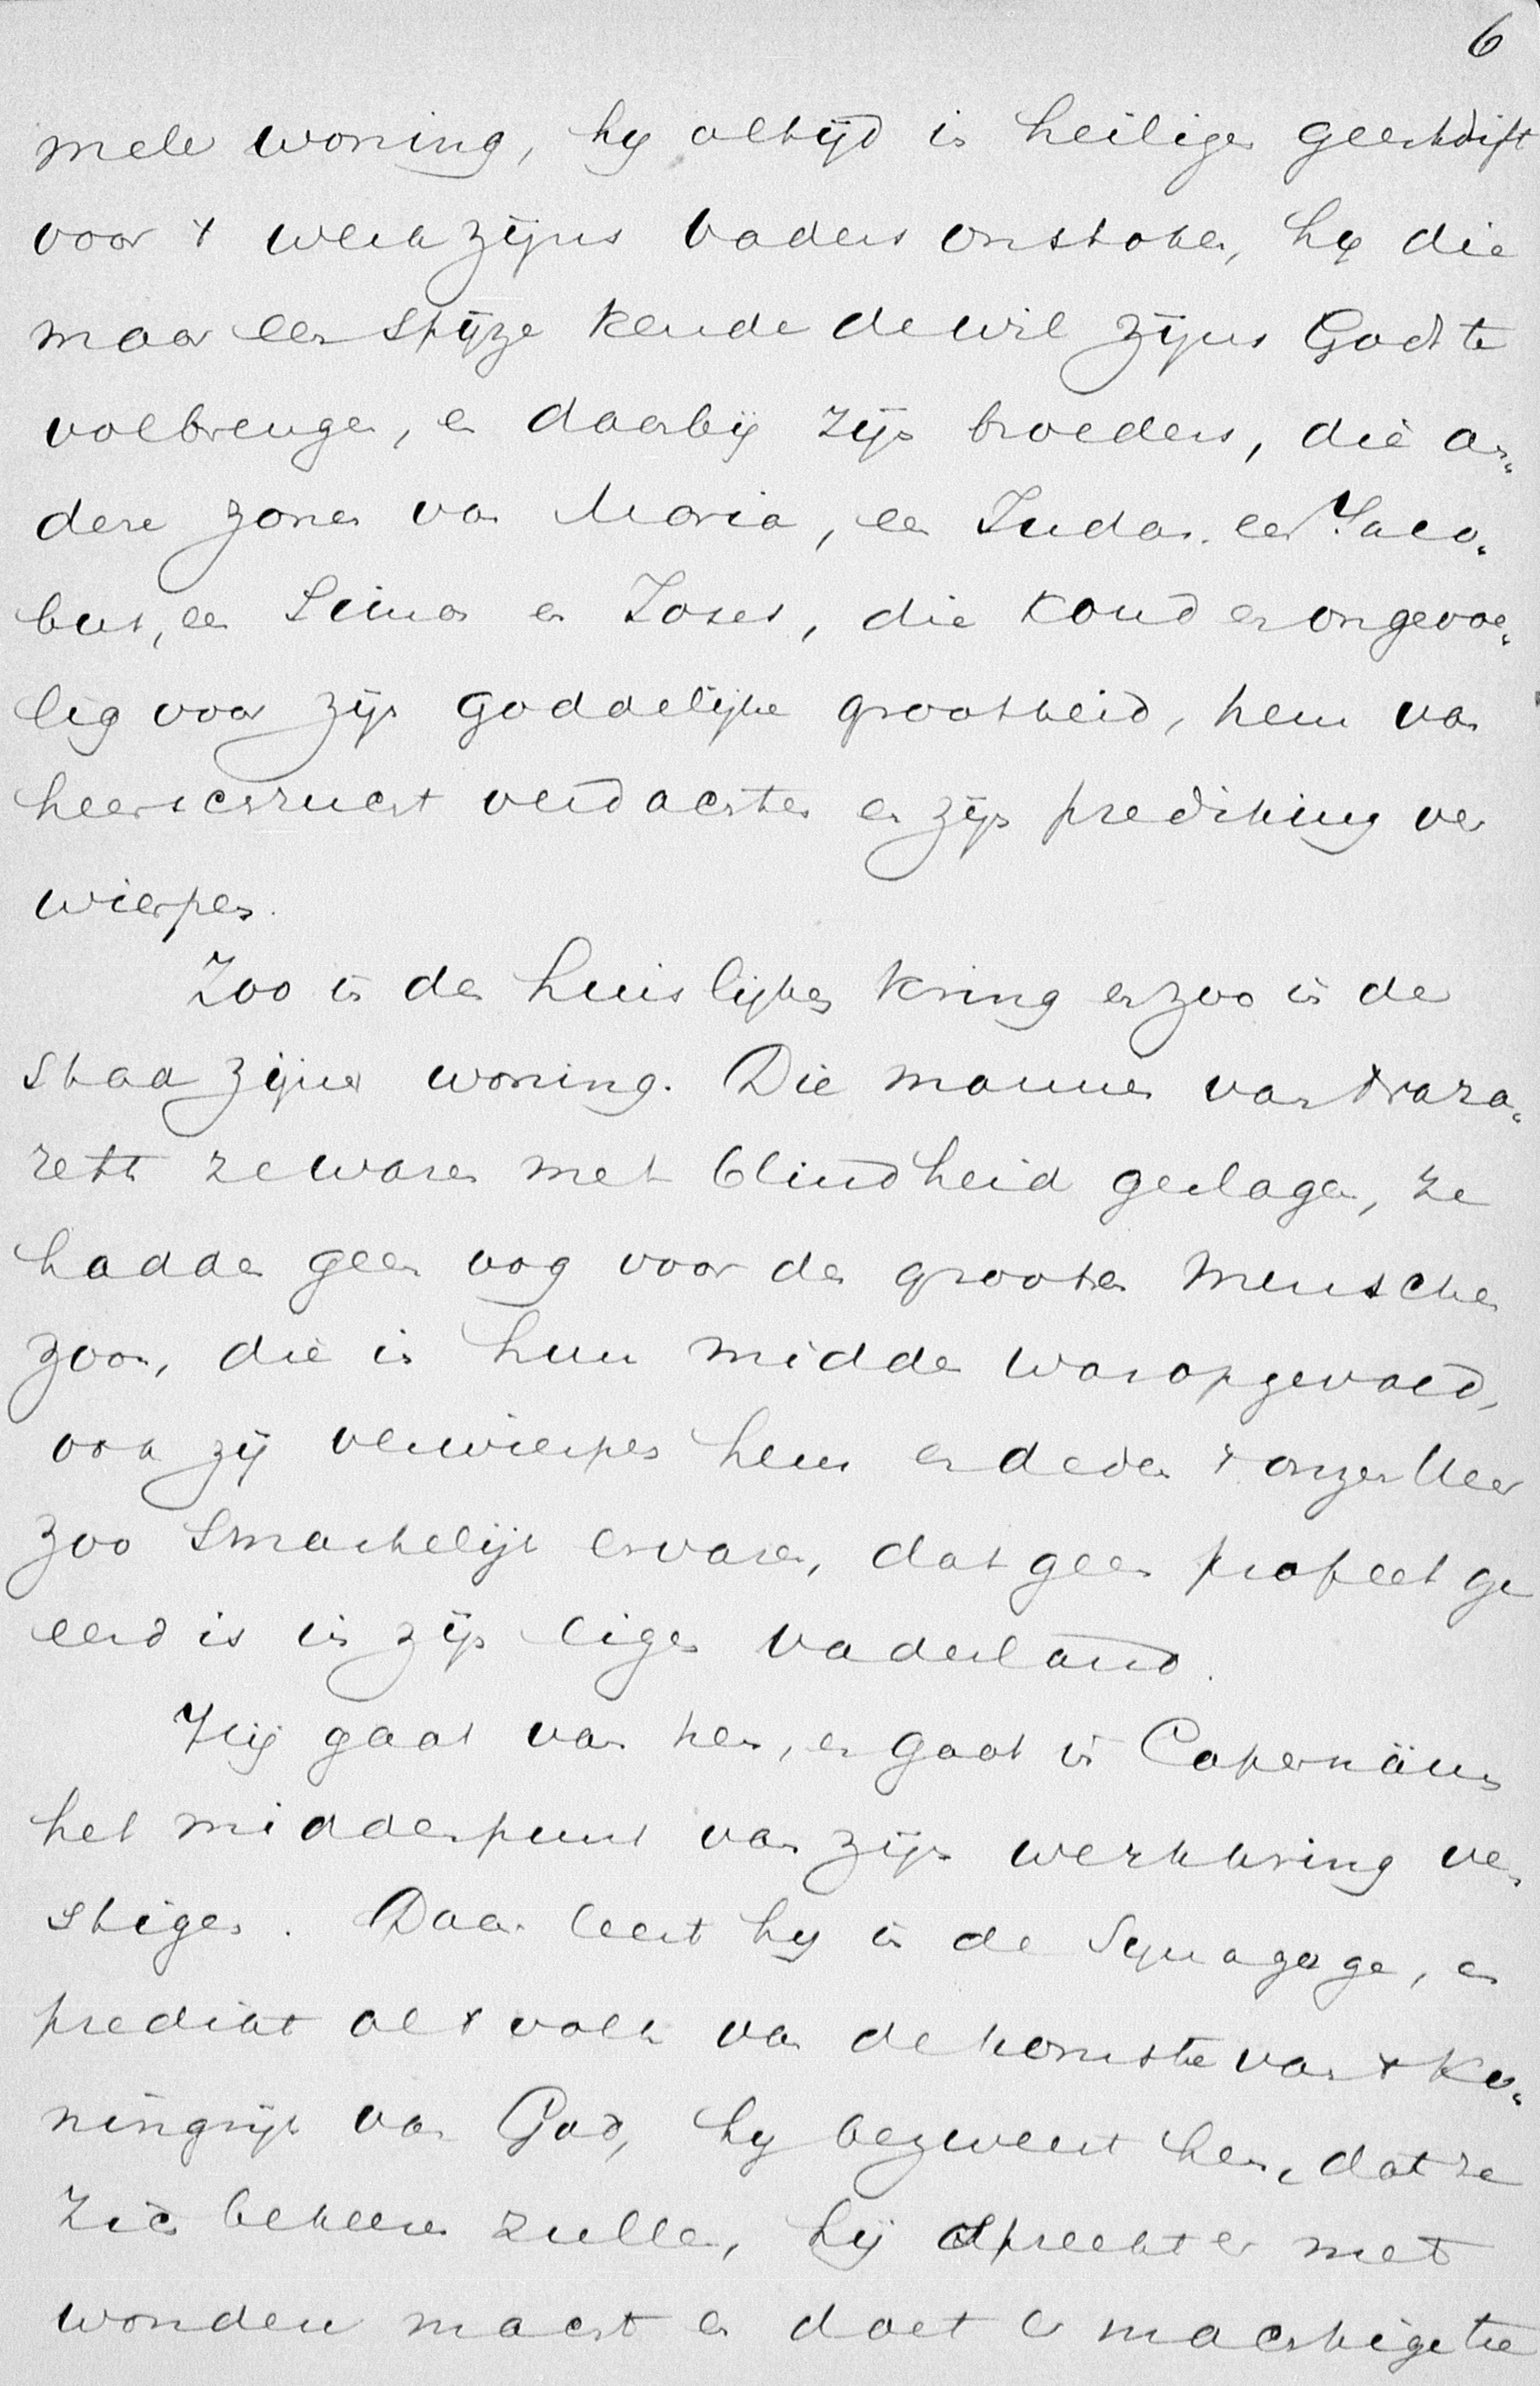 6
mele woning, hy altijd in heiligen geestdrift
voor 't werk zijns vaders ontstoken, hy die
maar een spijze kende de wil zijns Gods te
volbrengen, en daarbij zijn broeders, die an„
dere zonen van Maria, een Judas, een Jaco„
bus, een Simon en Joses, die koud en ongevoe„
lig voor zijn goddelijke grootheid, hem van
heerschzucht verdachten en zijn prediking ver
wierpen.
Zoo in den huislijken kring en zoo in de
stad zijner woning. Die mannen van Naza„
reth ze waren met blindheid geslagen, ze
hadden geen oog voor den grooten Menschen
zoon, die in hun midden was opgevoed,
ook zij verwierpen hem en deden 't onzen Heer
zoo smartelijk ervaren, dat geen profeet ge
eerd is in zijn eigen vaderland.
Hij gaat van hen, en gaat in Capernäum
het middenpunt van zijn werkkring ve
stigen. Daar leert hy in de Synagoge, en
predikt al 't volk van de komste van 't Ko„
ningrijk van God, hy bezweert hen, dat ze
zich bekeeren zullen, hij spreekt er met
wondere macht en doet er machtige tee